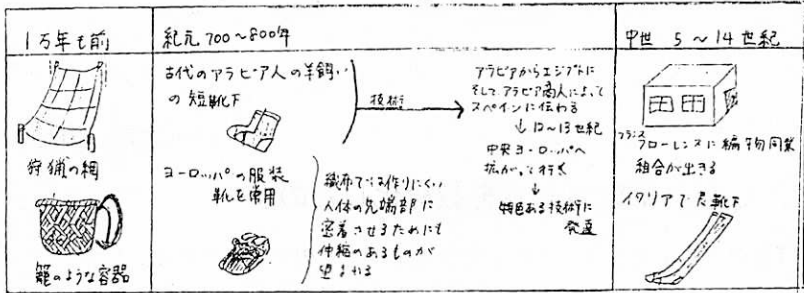 1万年も前
狩猟の網
籠のような容器
紀元700〜800年
古代のアラビア人の羊飼い
の短靴下
技術
アラビアからエジプトに
そして、アラビア商人によって
スペインに伝わる
↓12〜13世紀
中央ヨーロッパへ
拡がって行き
↓
特色ある技術に
発達
ヨーロッパの服装
靴を常用
織布では作りにくい
人体の先端部に
密着させるためにも
伸縮のあるものが
望まれる
中世 5〜14世紀
フランス
フローレンスに編物同業
組合が出きる
イタリアで長靴下